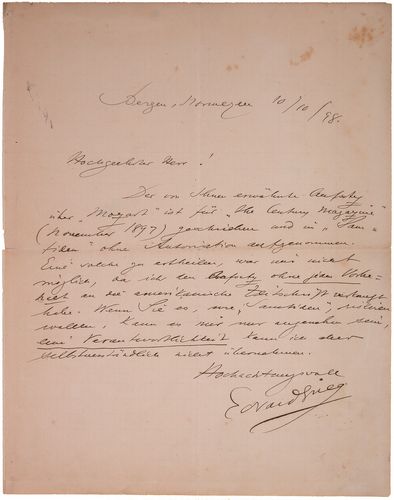 Bergen, Norwegen 10/10/98.
Hochgeehrter Herr!
Der von Ihnen erwähnte Aufsatz
über „Mozart" ist für „The Century Magazine"
(November 1897) geschrieben und in „Sam-
tiden" ohne Autorisation aufgenommen.
Eine solche zu ertheilen, war mir nicht
möglich, da ich den Aufsatz ohne jeden Vorbe-
halt an die amerikanische Zeitschrift verkauft
habe. Wenn Sie es, wie „Samtiden", riskiren
wollen, kann es mir nur angenehm sein,
eine Verantwortlichkeit kann ich aber
selbstverständlich nicht übernehmen.
Hochachtungsvoll
Edvard Grieg